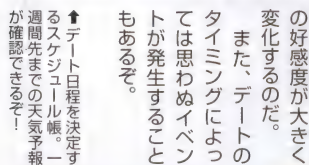 の好感度が大きく
変化するのだ。
また、デートの
タイミングによっ
ては思わぬイベン
トが発生すること
もあるぞ。
⬆デート日程を決定す
るスケジュール帳。一
週間先までの天気予報
が確認できるぞ！